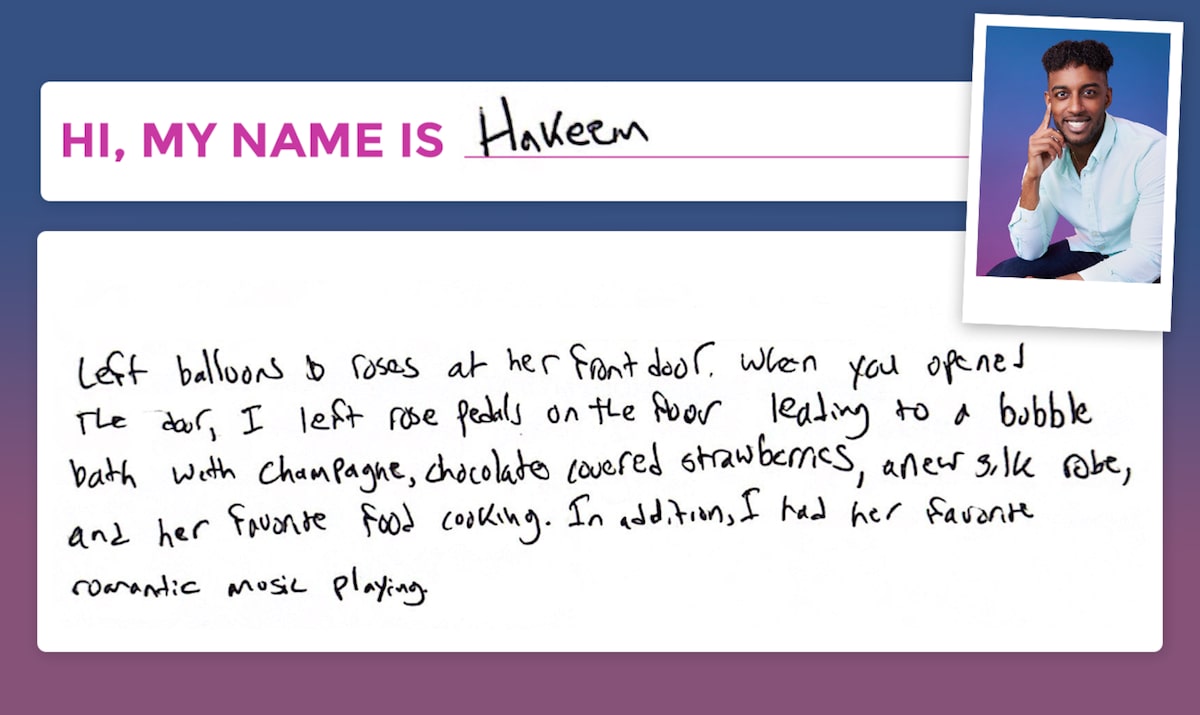 HI, MY NAME IS Hakeem
Left balloons & roses at her front door. When you opened
The door, I left rose pedals on the floor leading to a bubble
bath with champagne, chocolate covered strawberries, a new silk robe,
and her favorite food cooking. In addition, I had her favorite
romantic music playing.